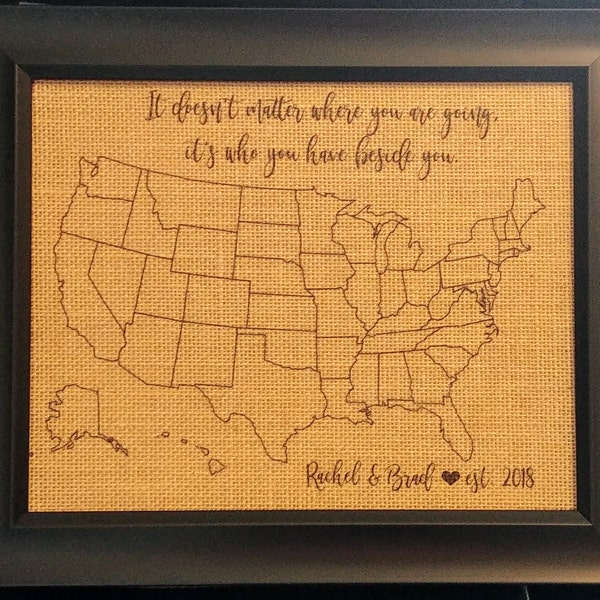 It doesn't matter where you are going,
it's who you have beside you.
Rachel & Brad ♥ est. 2018